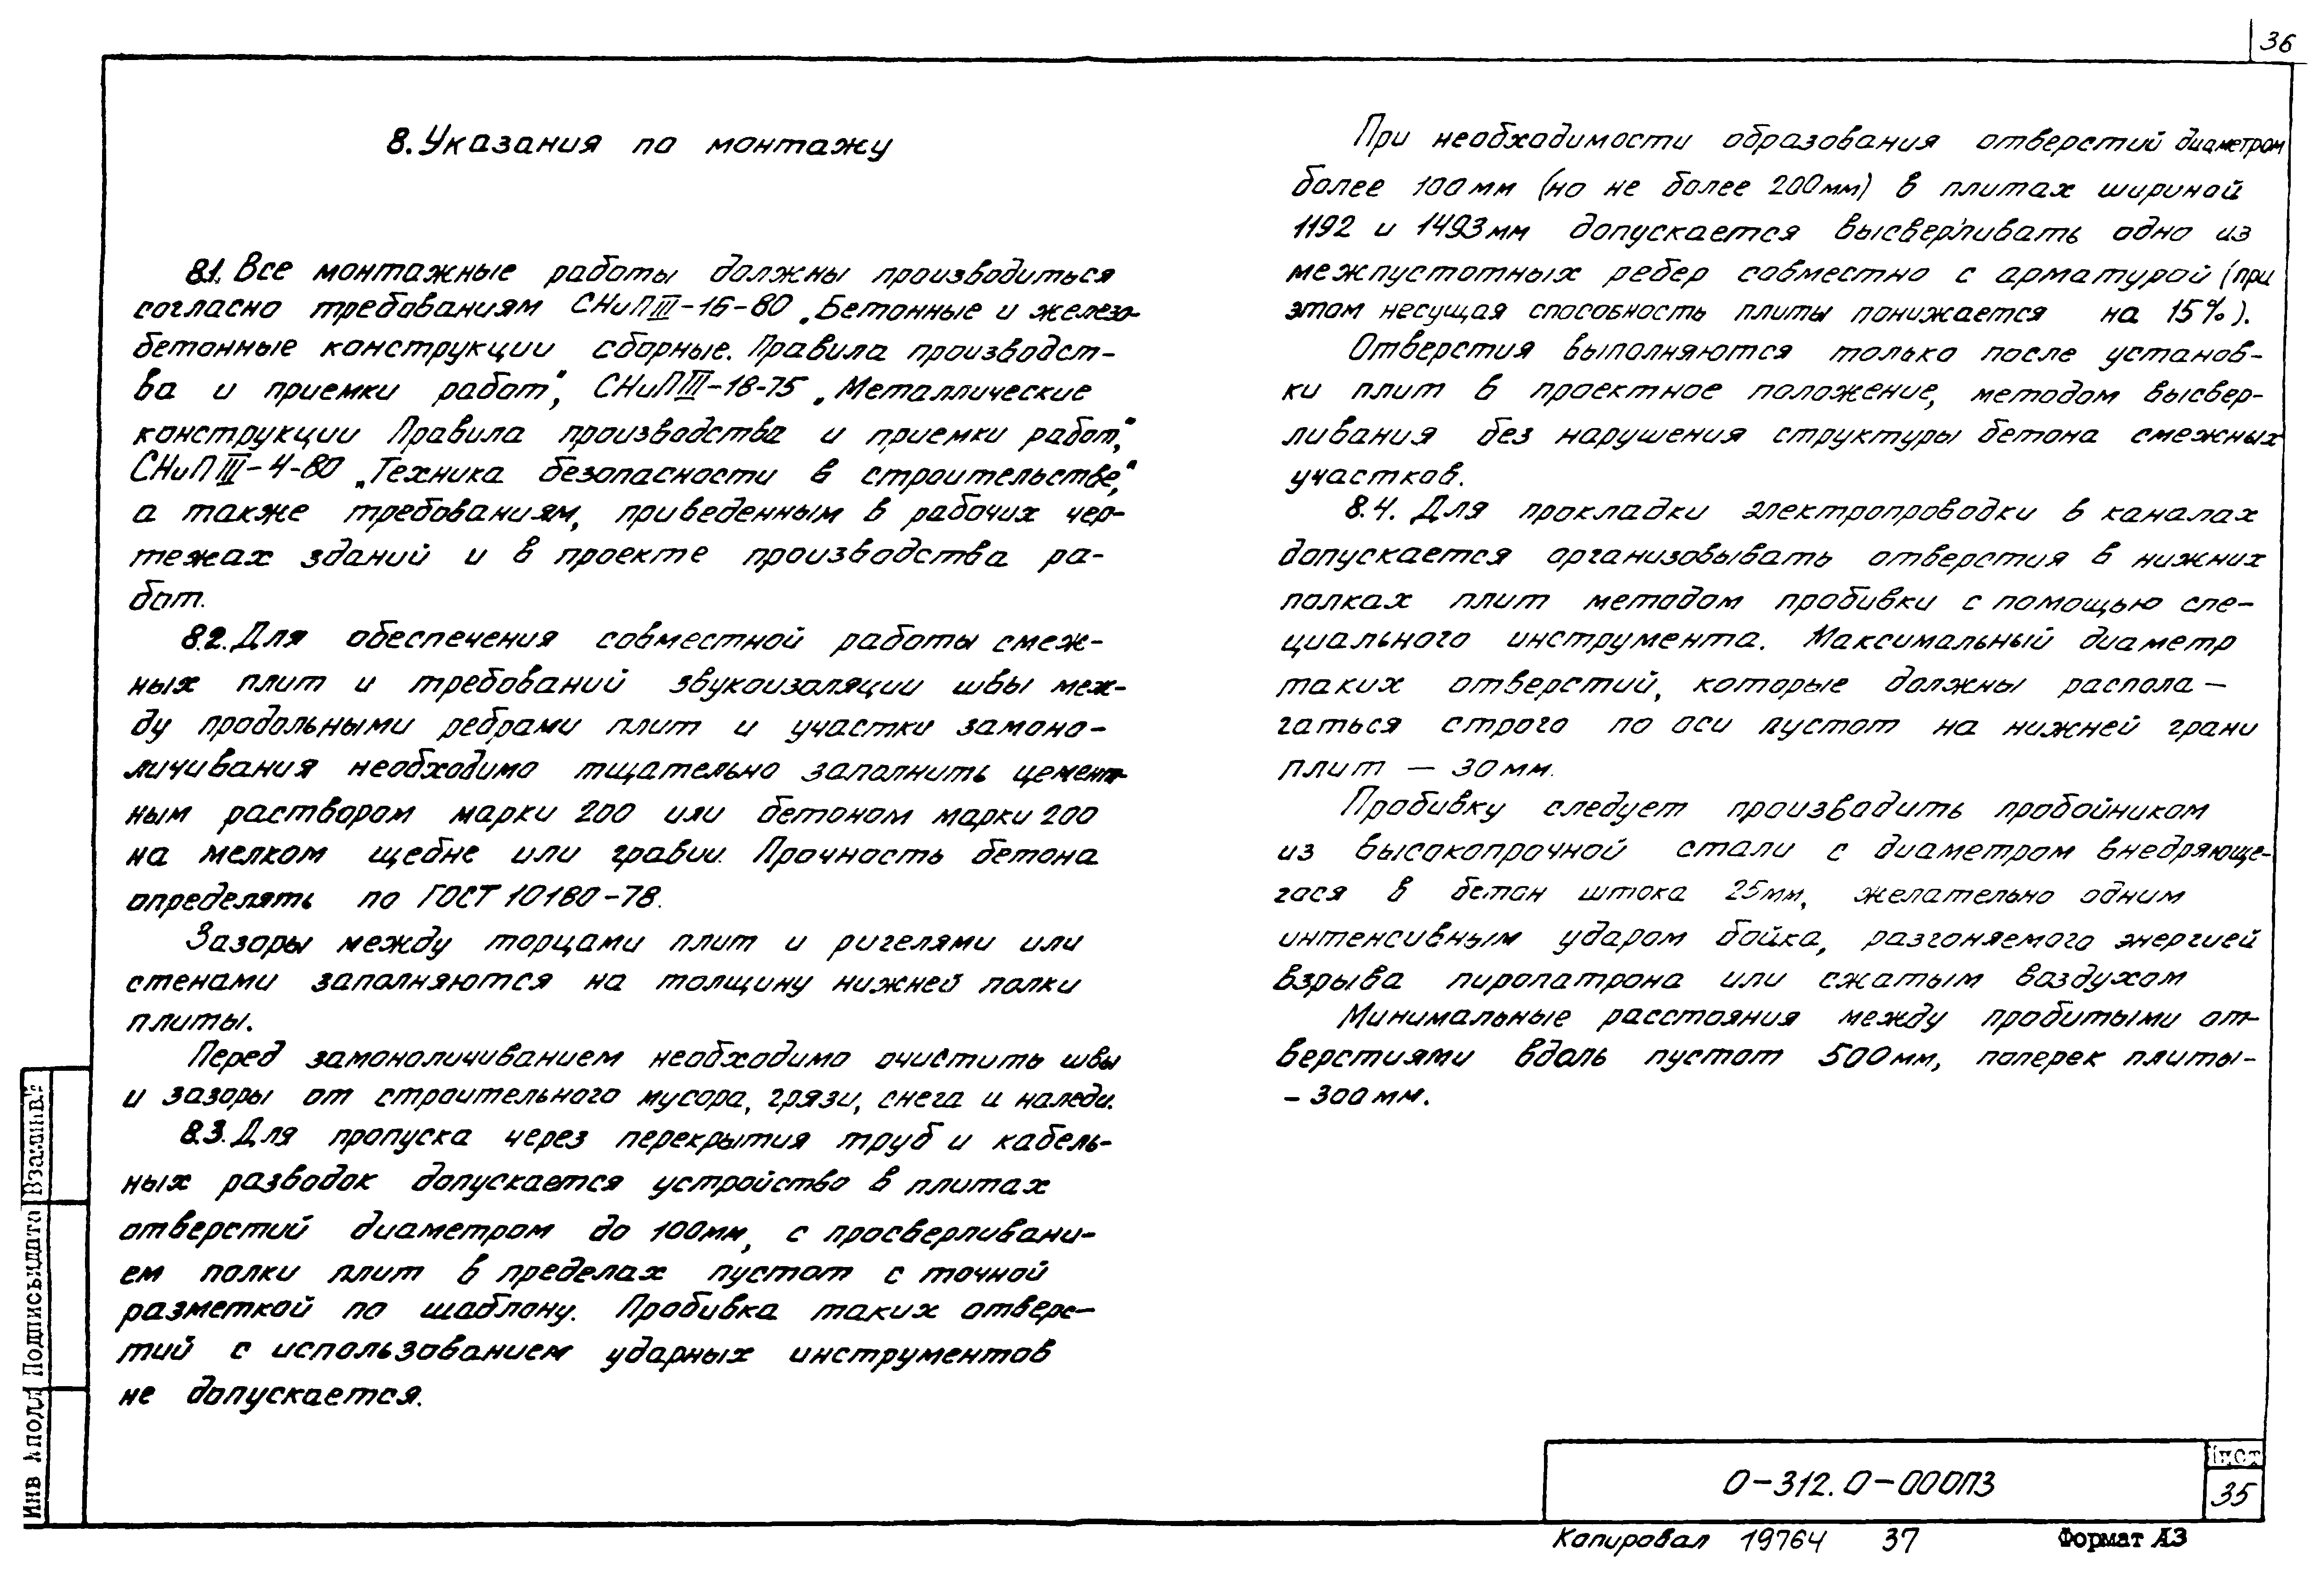 36
8. Указания по монтажу
8.1. Все монтажные работы должны производиться
согласно требованиям СНиП III-16-80 „Бетонные и железо-
бетонные конструкции сборные. Правила производст-
ва и приемки работ“, СНиП III-18-75 „Металлические
конструкции Правила производства и приемки работ“,
СНиП III-4-80 „Техника безопасности в строительстве“,
а также требованиям, приведенным в рабочих чер-
тежах зданий и в проекте производства ра-
бот.
8.2. Для обеспечения совместной работы смеж-
ных плит и требований звукоизоляции швы меж-
ду продольными ребрами плит и участки замоно-
личивания необходимо тщательно заполнить цемент-
ным раствором марки 200 или бетоном марки 200
на мелком щебне или гравии. Прочность бетона
определять по ГОСТ 10180-78.
Зазоры между торцами плит и ригелями или
стенами заполняются на толщину нижней полки
плиты.
Перед замоноличиванием необходимо очистить швы
и зазоры от строительного мусора, грязи, снега и наледи.
8.3. Для пропуска через перекрытия труб и кабель-
ных разводок допускается устройство в плитах
отверстий диаметром до 100мм, с просверливани-
ем полки плит в пределах пустот с точной
разметкой по шаблону. Пробивка таких отверс-
тий с использованием ударных инструментов
не допускается.
При необходимости образования отверстий диаметром
более 100мм (но не более 200мм) в плитах шириной
1192 и 1493мм допускается высверливать одно из
межпустотных ребер совместно с арматурой (при
этом несущая способность плиты понижается на 15%).
Отверстия выполняются только после установ-
ки плит в проектное положение, методом высвер-
ливания без нарушения структуры бетона смежных
участков.
8.4. Для прокладки электропроводки в каналах
допускается организовывать отверстия в нижних
полках плит методом пробивки с помощью спе-
циального инструмента. Максимальный диаметр
таких отверстий, которые должны распола-
гаться строго по оси пустот на нижней грани
плит — 30мм.
Пробивку следует производить пробойником
из высокопрочной стали с диаметром внедряюще-
гося в бетон штока 25мм, желательно одним
интенсивным ударом бойка, разгоняемого энергией
взрыва пиропатрона или сжатым воздухом
Минимальные расстояния между пробитыми от-
верстиями вдоль пустот 500мм, поперек плиты-
- 300мм.
Взам инв.
Подпись и дата
Инв № подл
О-312.О-000ПЗ
Лист
35
Копировал 19764 37 Формат А3